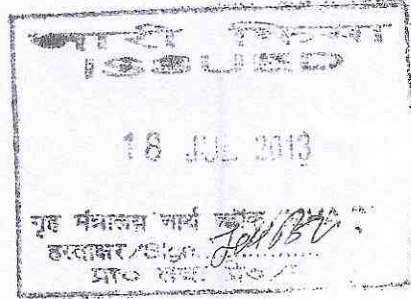 जारी किया
ISSUED
18 JUL 2013
गृह मंत्रालय नार्थ ब्लॉक
हस्ताक्षर/Sign